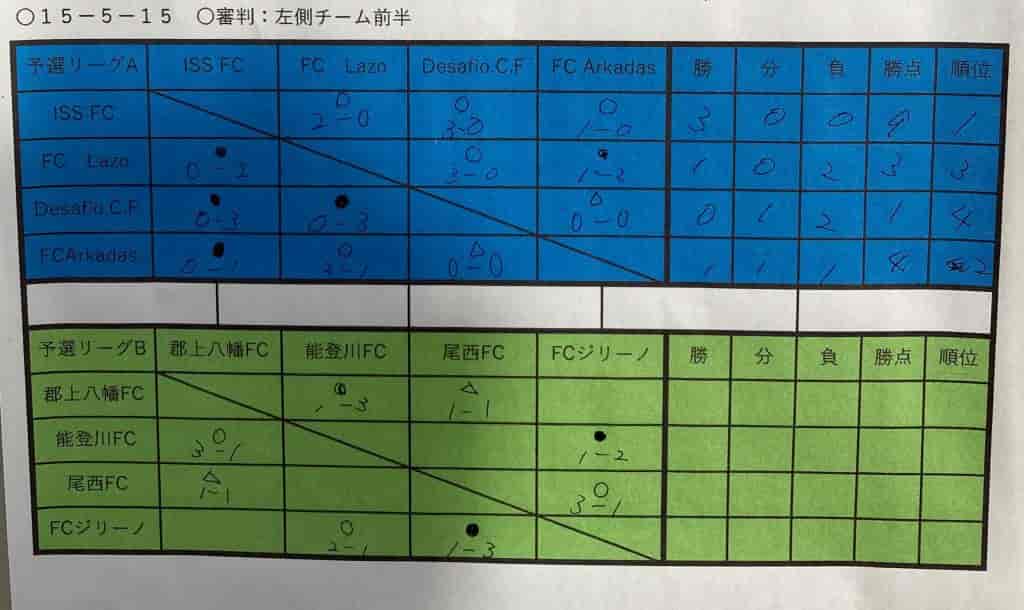 ○15-5-15 ○審判：左側チーム前半
予選リーグA ISS FC FC Lazo Desafio.C.F FC Arkadas 勝 分 負 勝点 順位
ISS FC ○ 2-0 ○ 3-0 ○ 1-0 3 0 0 9 1
FC Lazo ● 0-2 ○ 3-0 ● 1-2 1 0 2 3 3
Desafio.C.F ● 0-3 ● 0-3 △ 0-0 0 1 2 1 4
FCArkadas ● 0-1 ○ 2-1 △ 0-0 1 1 1 4 2
予選リーグB 郡上八幡FC 能登川FC 尾西FC FCジリーノ 勝 分 負 勝点 順位
郡上八幡FC ● 1-3 △ 1-1
能登川FC ○ 3-1 ● 1-2
尾西FC △ 1-1 ○ 3-1
FCジリーノ ○ 2-1 ● 1-3